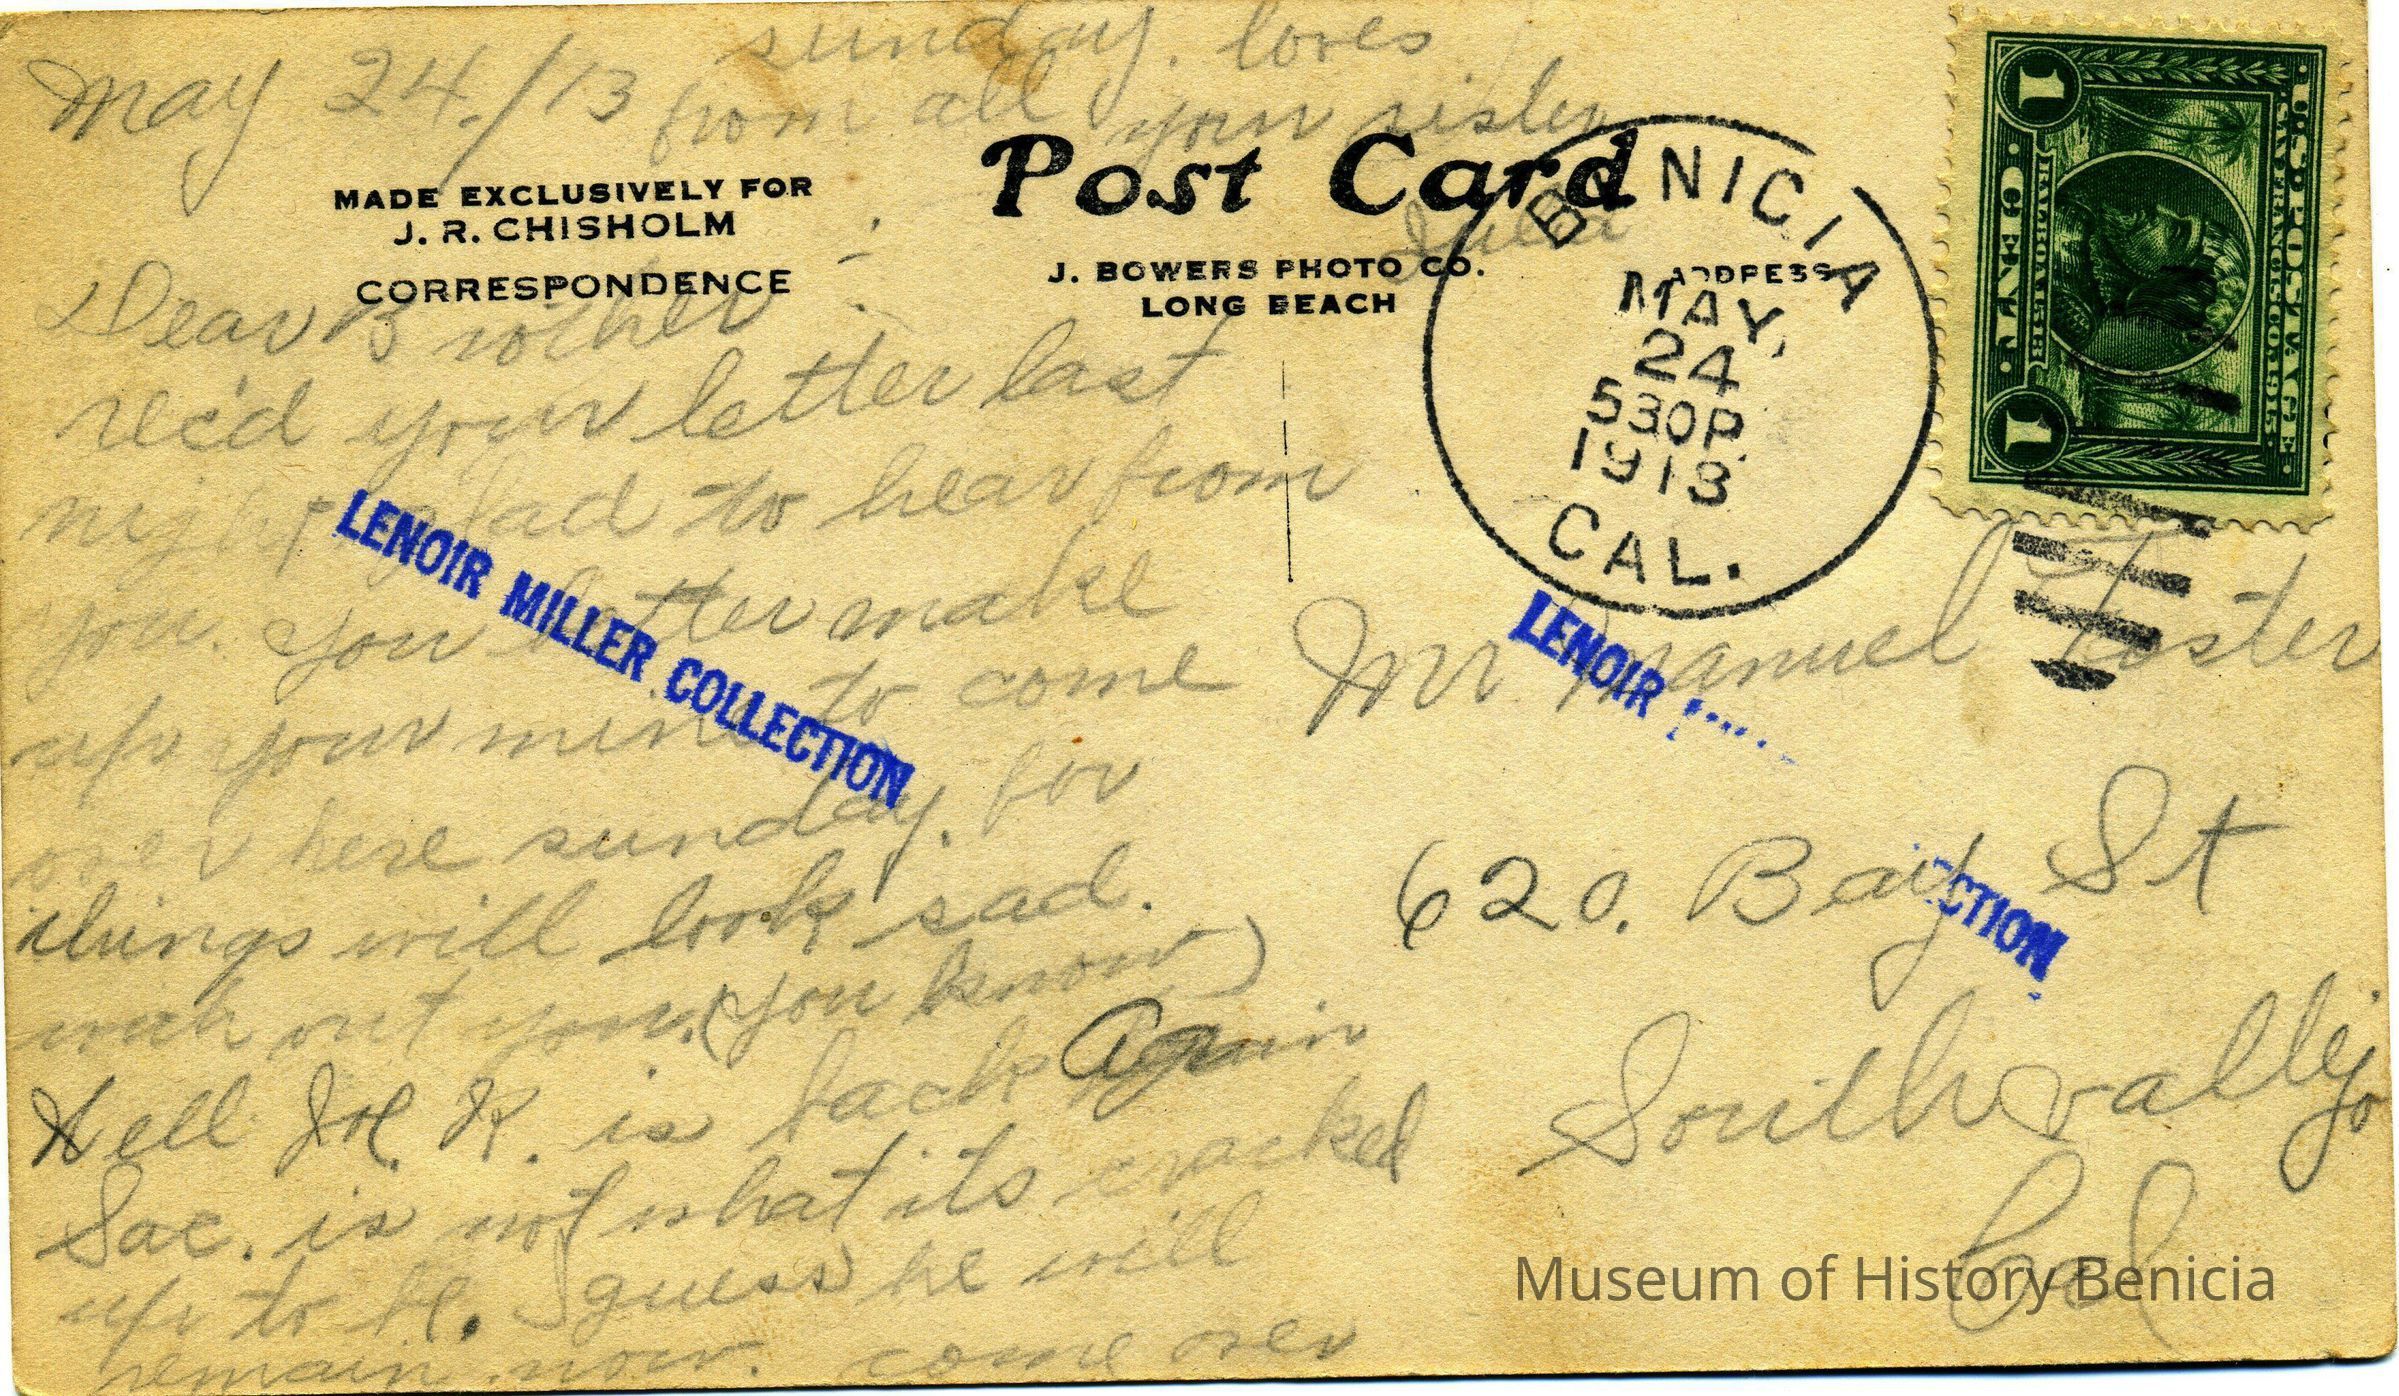 May 24./13
MADE EXCLUSIVELY FOR
J. R. CHISHOLM
CORRESPONDENCE
Dear Brother :-
rec'd your letter last
glad to hear from
you. you better make
up your mind to come
over here sunday. for
things will look sad.
with out you. (you know)
Well J. H. R. is back Again
Sac. is not what its cracked
up to be. I guess he will
remain now. come over
sunday. loves
from all your sister
Post Card
J. BOWERS PHOTO CO.
LONG BEACH
ADDRESS
BENICIA
MAY,
24
530P
1913
CAL.
U.S. POSTAGE
SAN FRANCISCO 1915
BALBOA 1513
1 ONE CENT 1
Mr. Manuel Foster
620. Bay St
South Vallejo
Cal
LENOIR MILLER COLLECTION
LENOIR
CTION
Museum of History Benicia